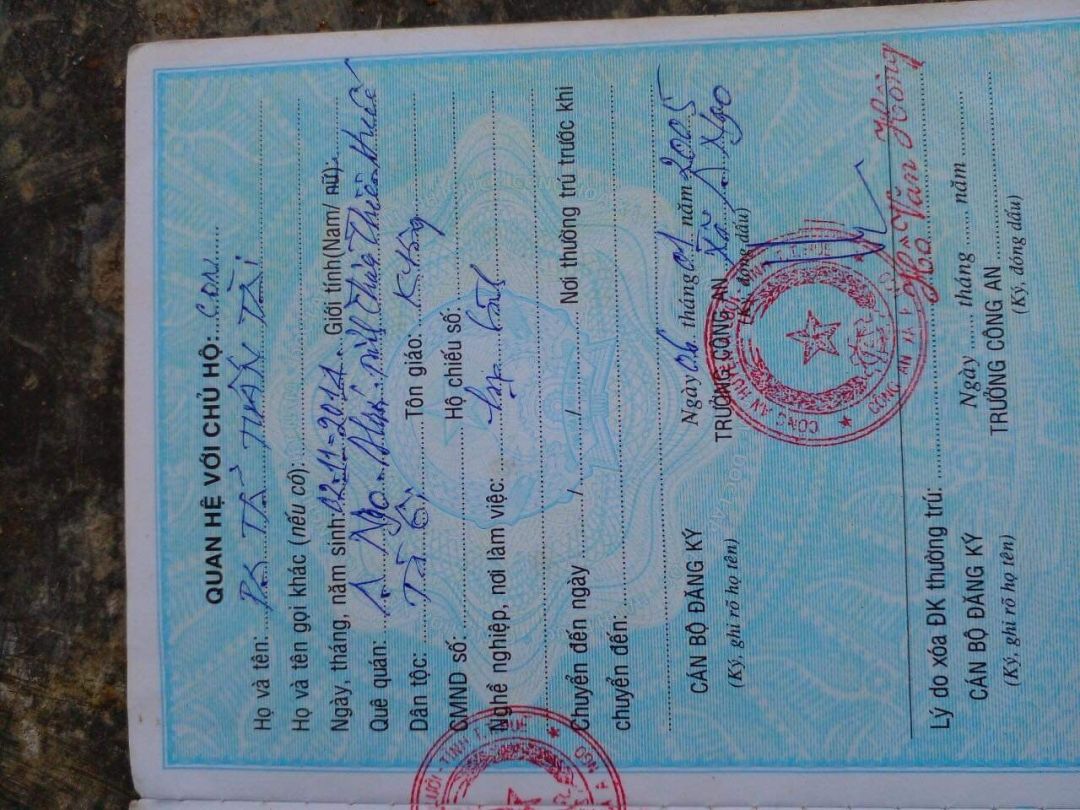 QUAN HỆ VỚI CHỦ HỘ: Con
Họ và tên: TUẤN TÀI
Họ và tên gọi khác (nếu có):
Ngày, tháng, năm sinh: 02-11-2011. Giới tính (Nam/ nữ):
Quê quán: A Ngo Thừa Thiên Huế
Dân tộc: Tà Ôi Tôn giáo: Không
CMND số: Hộ chiếu số:
Nghề nghiệp, nơi làm việc:
Chuyển đến ngày / / Nơi thường trú trước khi
chuyển đến:
Ngày 06 tháng 01 năm 2005
CÁN BỘ ĐĂNG KÝ TRƯỞNG CÔNG AN Xã A Ngo
(Ký, ghi rõ họ tên) (Ký, đóng dấu)
Hồ Văn Hồng
Lý do xóa ĐK thường trú:
Ngày tháng năm
CÁN BỘ ĐĂNG KÝ TRƯỞNG CÔNG AN
(Ký, ghi rõ họ tên) (Ký, đóng dấu)